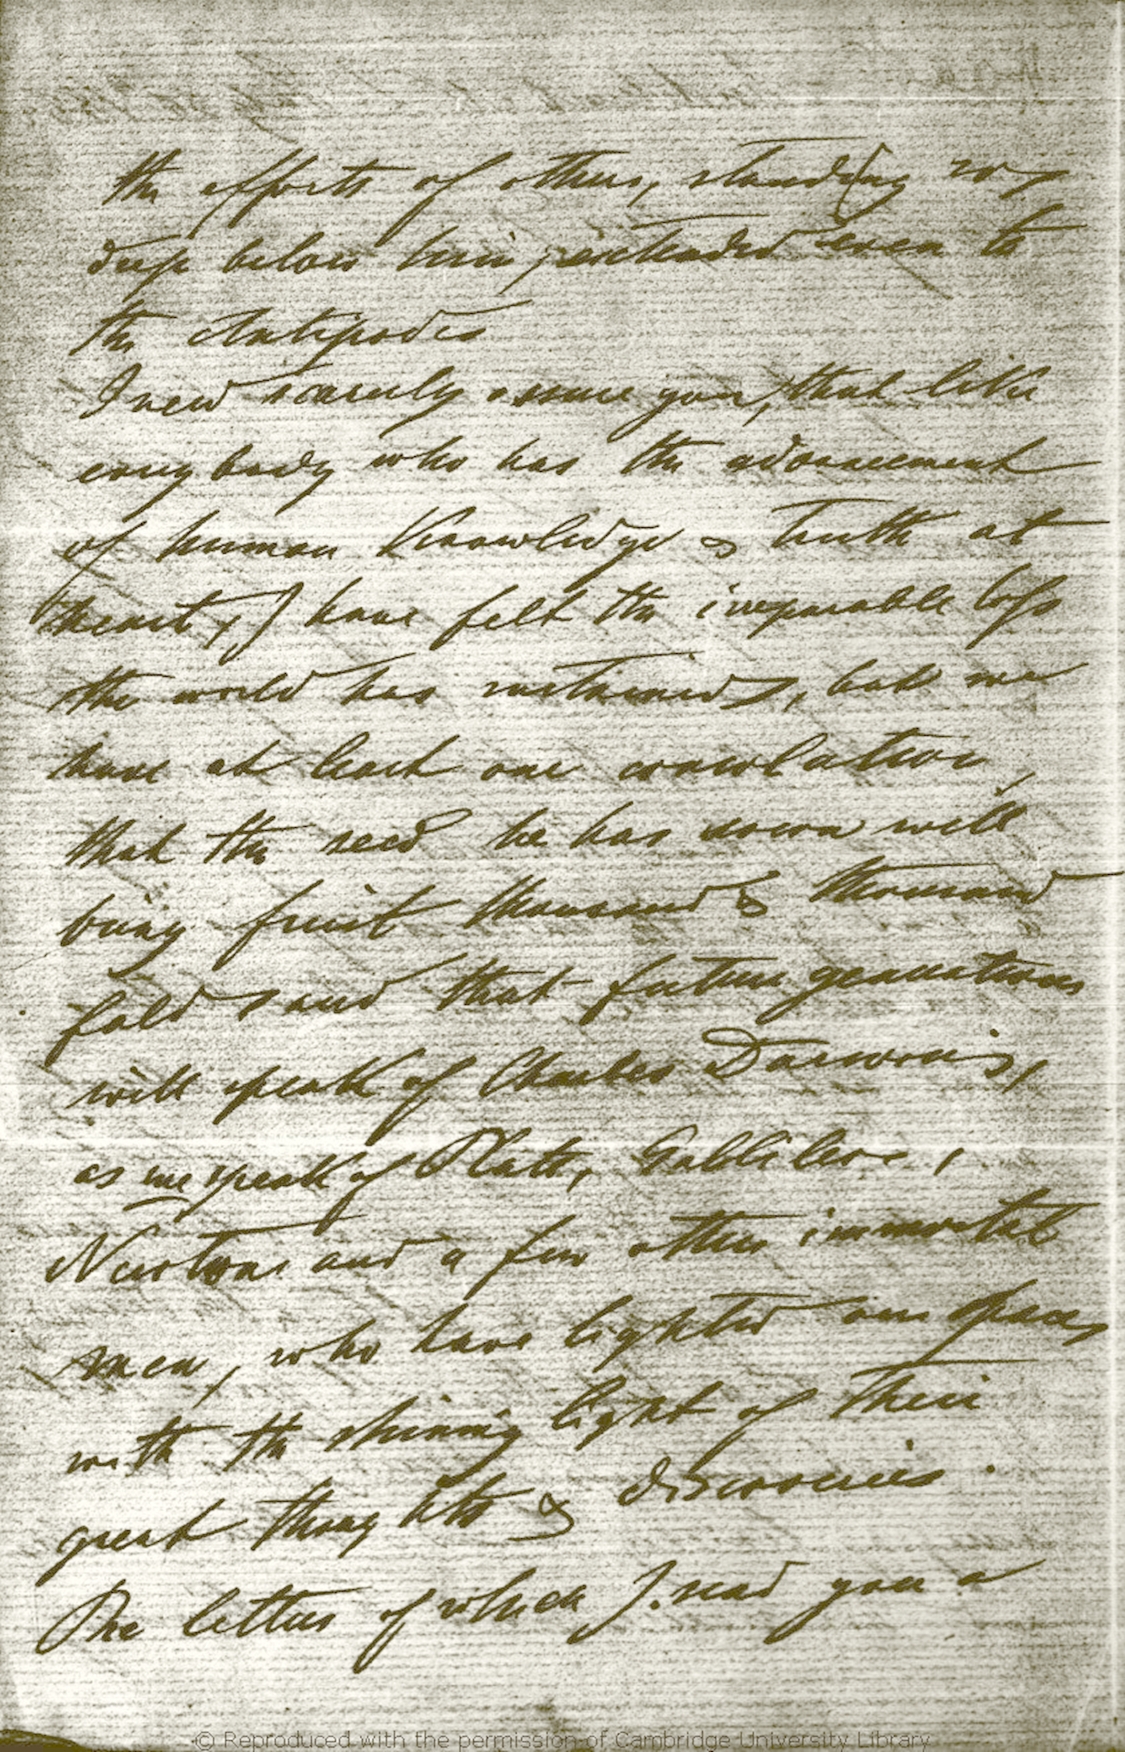 the efforts of others, standing so
deep below him, extended even to
the Antipodes
I need scarcely assure you, that like
everybody who has the advancement
of human Knowledge & Truth at
heart, I have felt the irreparable loss
the world has sustained, but we
have at least one consolation,
that the seed he has sown will
bring fruit thousand & thousand
fold and that future generations
will speak of Charles Darwin,
as we speak of Plato, Gallileo,
Newton and a few other immortal
men, who have lighted our
with the shining light of their
great thoughts & discoveries.
The letters of which I send you a
© Reproduced with the permission of Cambridge University Library